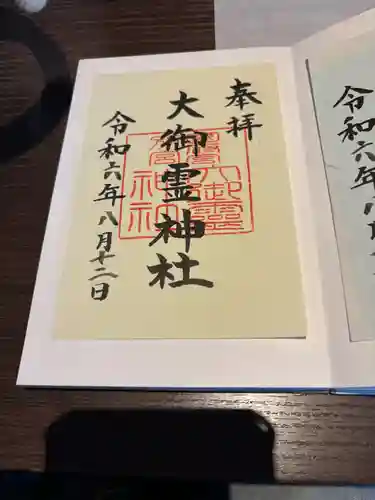 奉拝
大御霊神社
令和六年八月十二日
令和六年八月